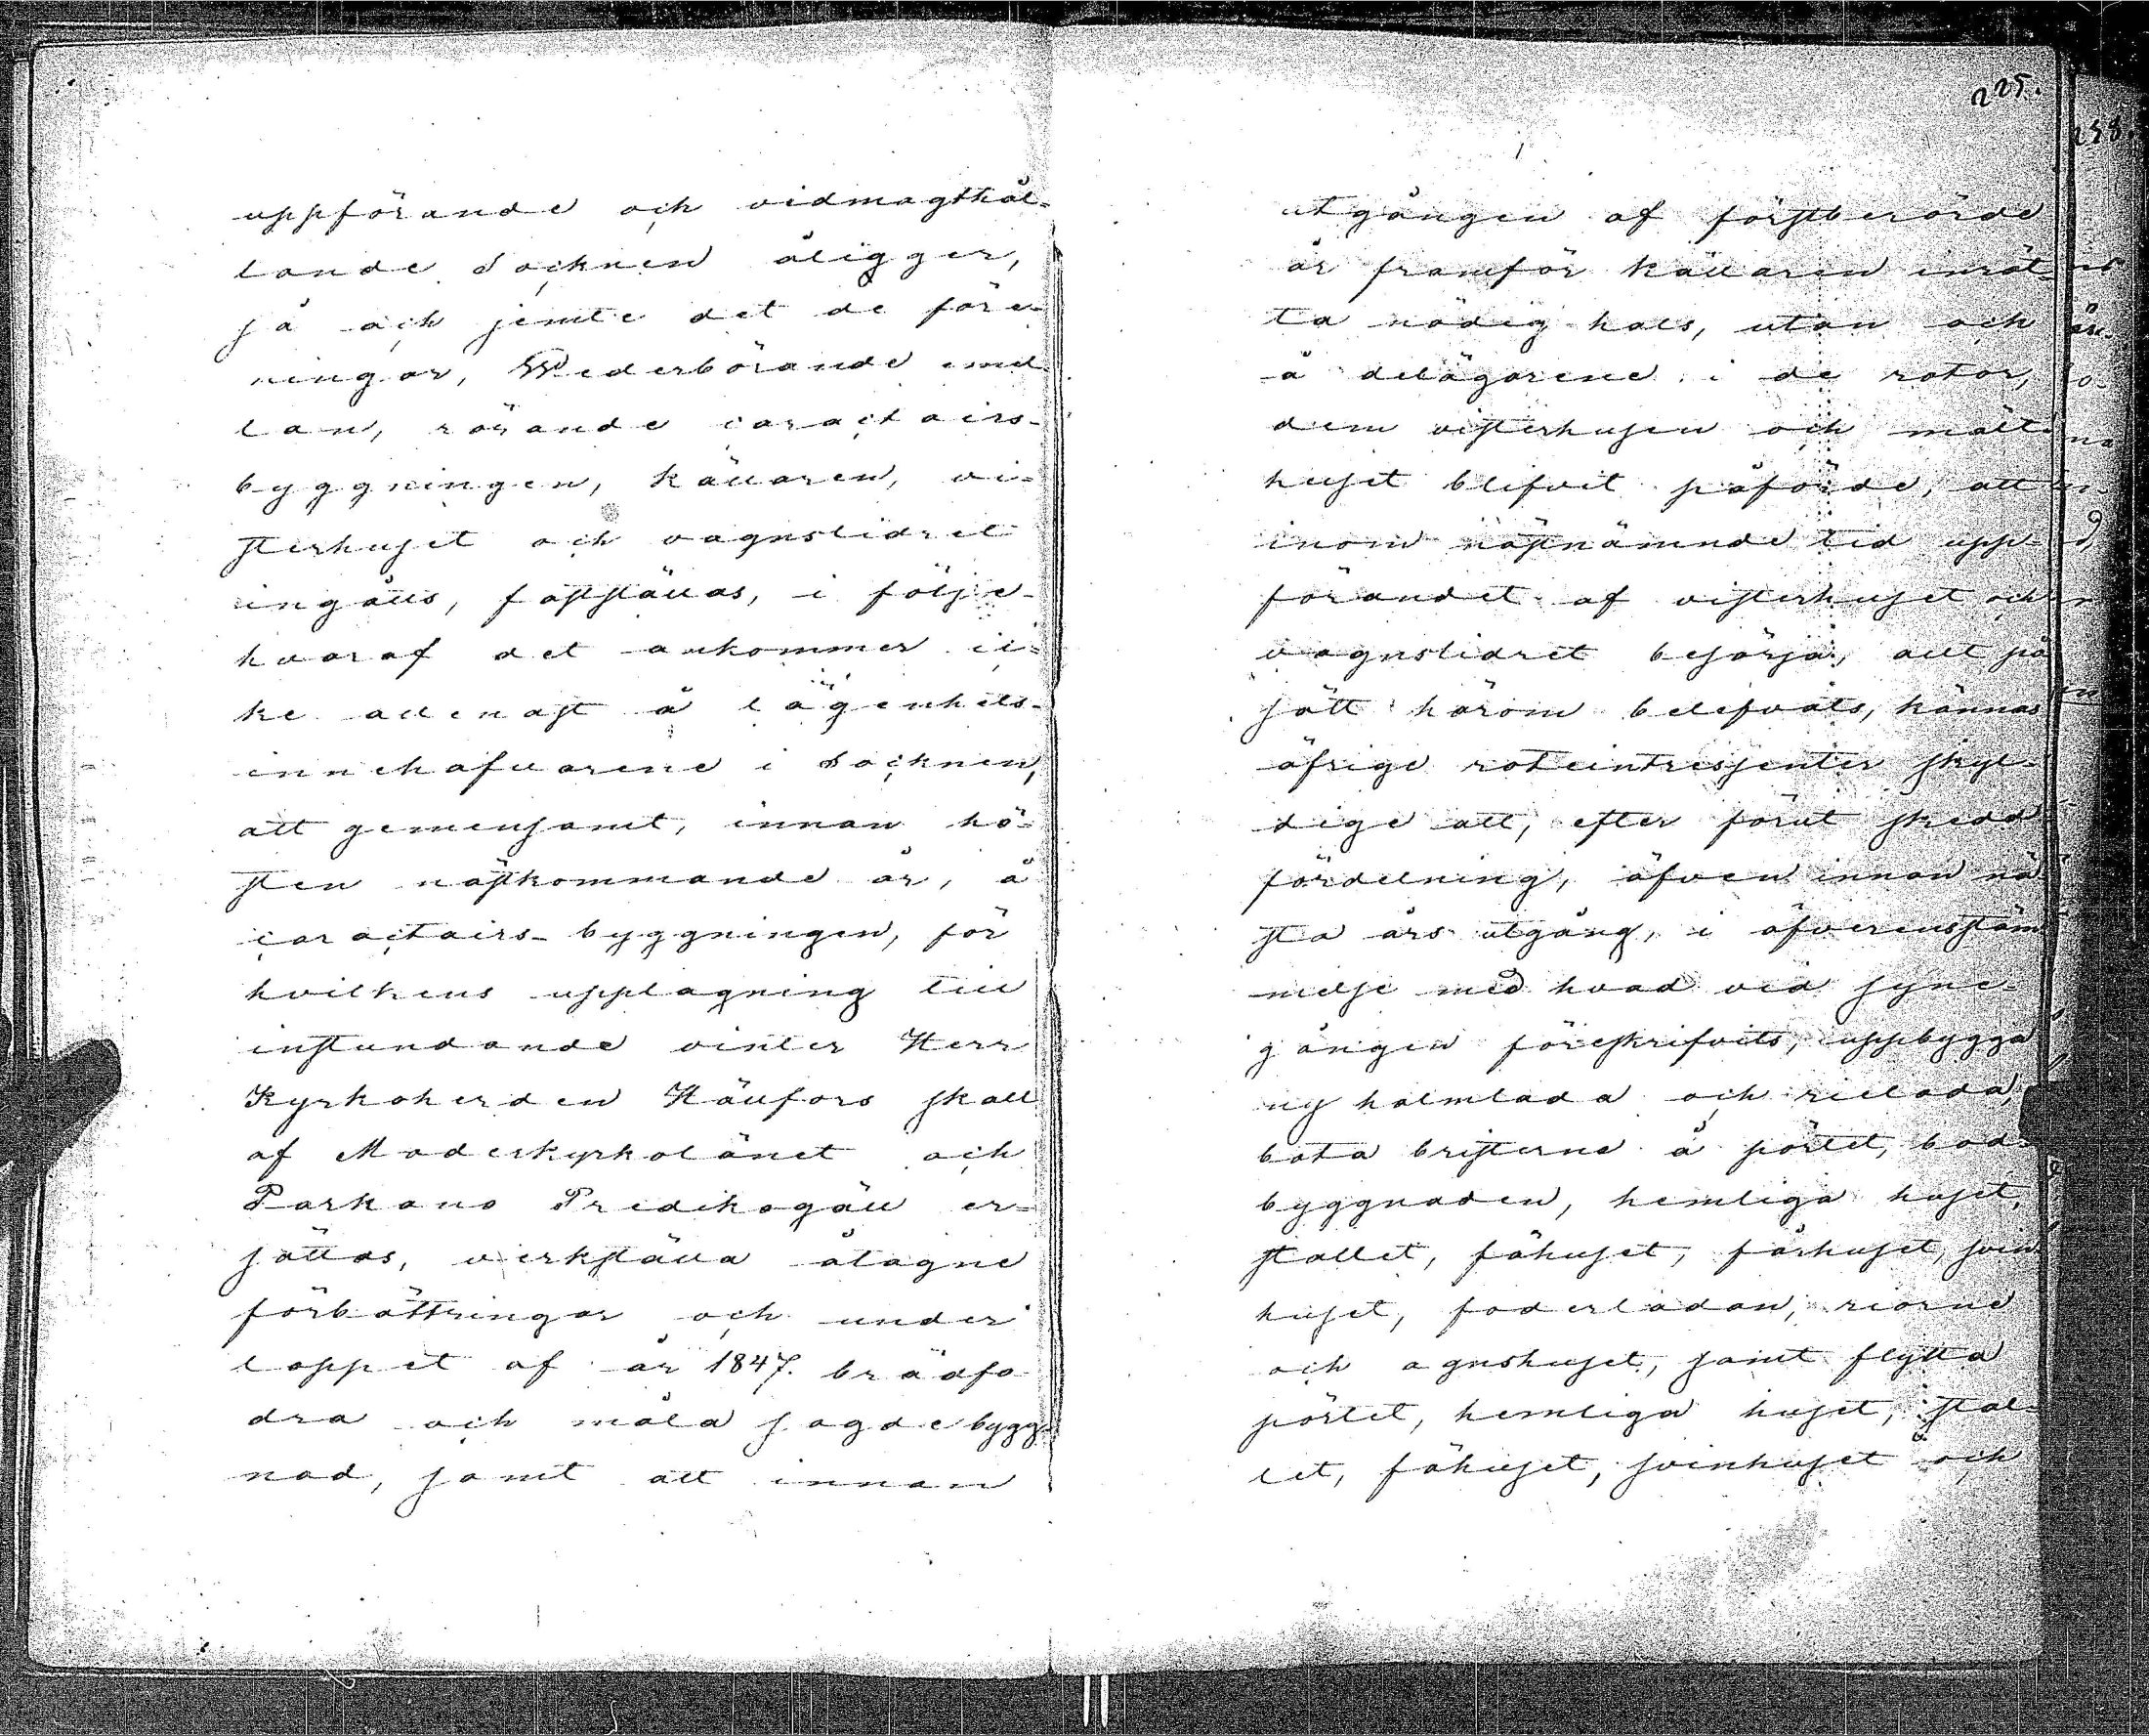 uppförande och vidmagthål-
lande Socknen åligger,
så och jemte det de före-
ningar, Wederbörande emel-
lan, rörande caractairs-
byggningen, källaren, vi-
sterhuset och vagnslidret
ingåtts, fastställas, i följe
hvaraf det ankommer ic-
ke allenast å lägenhets-
innehafvarene i Socknen,
att gemensamt, innan hö-
sten nästkommande år, å
caractairs-byggningen, för
hvilkens upplagning till
instundande vinter Herr
Kyrkoherden Hällfors skall
af Moderkyrkolänet och
Parkano Predikogäll er-
sättas, verkställa ålagne
förbättringar och under
loppet af år 1847. brädfo
dra och måla sagde bygg-
nad, samt att innan
225.
utgången af förstberörde
år framför källaren inrät-
ta nödig hals, utan och
å delägarene i de rotar,
dem visterhusen och mält-
huset blifvit påförde, att
inom näst nämnde tid upp-
förandet af visterhuset och
vagnslidret besörja, allt på
sätt härom belefvats, kännas
öfrige roteintressenter skyl-
dige att, efter förut skedd
fördelning, äfven innan nä
sta års utgång, i öfverensstäm
melse med hvad vid syne-
gången föreskrifvits, uppbygga
ny halmlada och rielada,
bota bristerne å pörtet, bod-
byggnaden, hemliga huset,
stallet, fähuset, fårhuset, svin
huset, foderladan, riorne
och agnshuset, samt flytta
pörtet, hemliga huset, stal-
let, fähuset, svinhuset och
258.